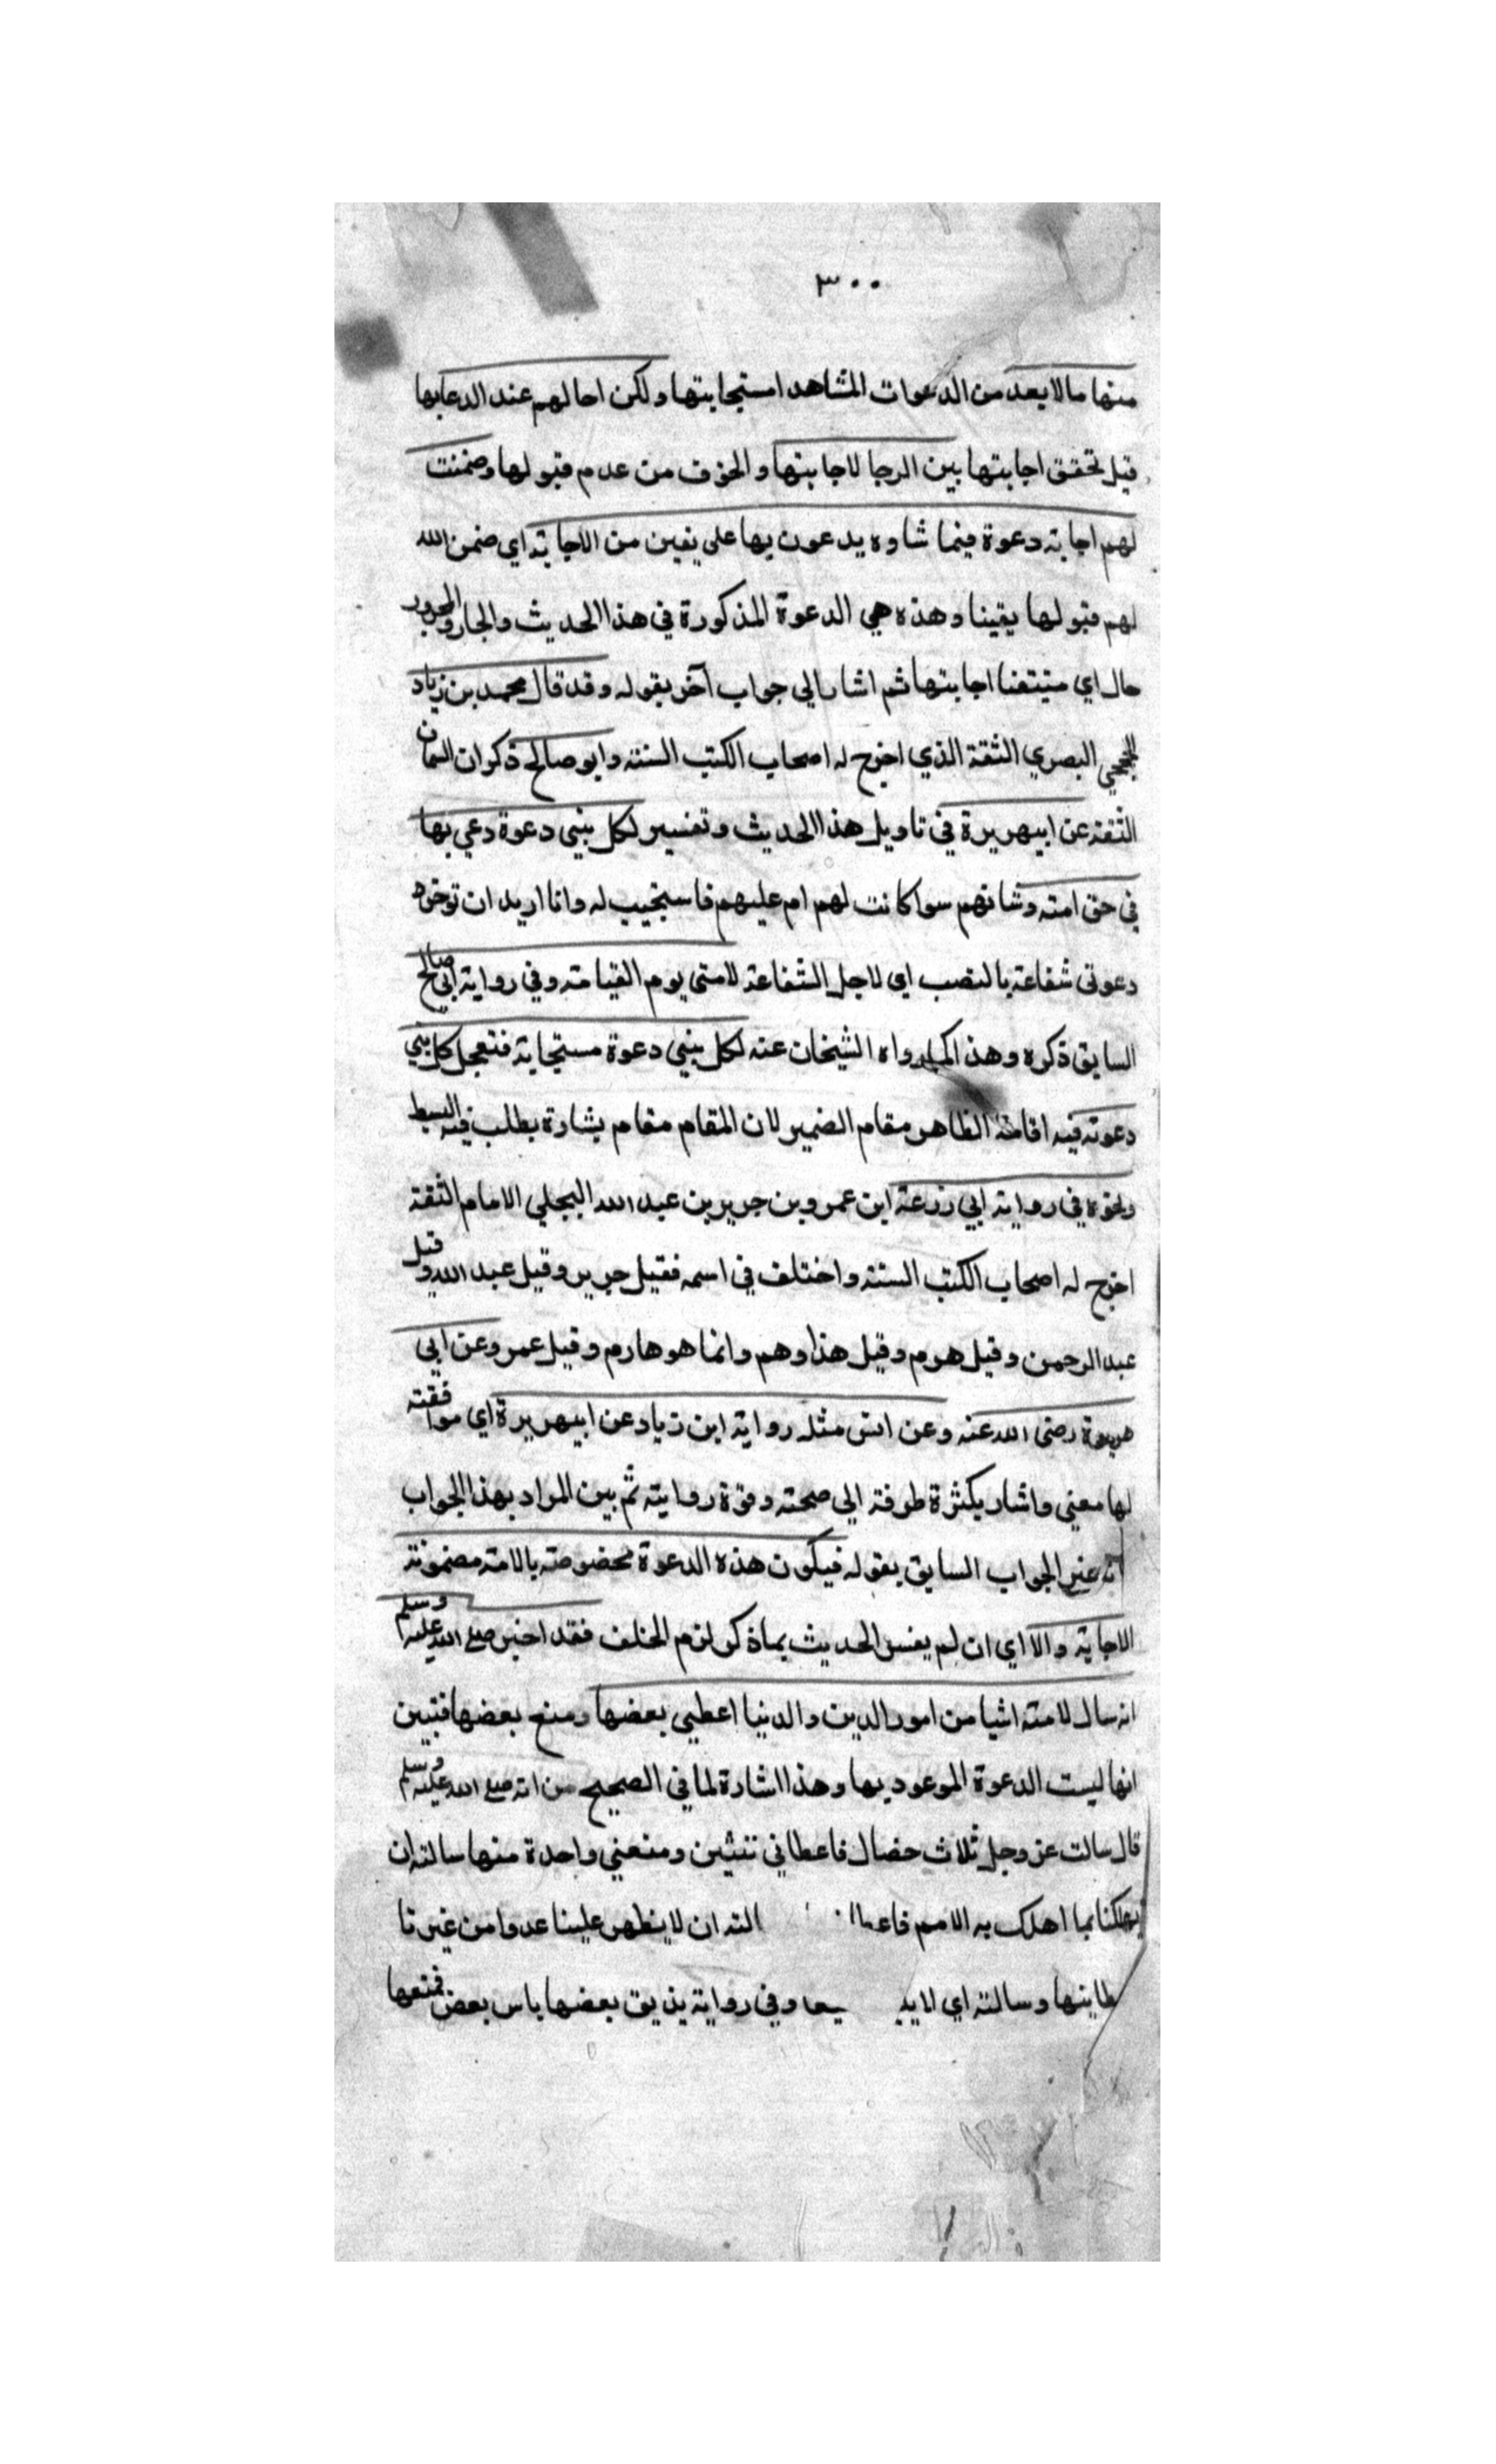 ٣٠٠
منها مالا يعد من الدعوات المشاهد استجابتها ولكن احالهم عند الدعا بها
قبل تحقق اجابتها بين الرجا لاجابتها والخوف من عدم قبولها وضمنت
لهم اجابة دعوة فيما شاوه يدعون بها على يقين من الاجابة اي ضمن الله
لهم قبولها يقينا وهذه هي الدعوة المذكورة في هذا الحديث والجار والمجرور
حال اي متيقنا اجابتها ثم اشار الي جواب آخر بقوله وقد قال محمد بن زياد
الجمحي البصري الثقة الذي اخرج له اصحاب الكتب الستة وابو صالح ذكوان السمان
الثقة عن ابي هريرة في تاويل هذا الحديث وتفسير لكل نبي دعوة دعي بها
في حق امته وشانهم سوا كانت لهم ام عليهم فاستجيب له وانا اريد ان توخره
دعوتي شفاعة بالنصب اي لاجل الشفاعة لامتي يوم القيامة وفي رواية ابي صالح
السابق ذكره وهذا كما رواه الشيخان عنه لكل نبي دعوة مستجابة فتعجل كل نبي
دعوته فيه اقامة الظاهر مقام الضمير لان المقام مقام بشارة يطلب فيه البسط
ونحوه في رواية ابي زرعة ابن عمرو بن جرير بن عبد الله البجلي الامام الثقة
اخرج له اصحاب الكتب الستة واختلف في اسمه فقيل جرير وقيل عبد الله وقيل
عبد الرحمن وقيل هرم وقيل هذا وهم وانما هو هارم وقيل عمرو عن ابي
هريرة رضي الله عنه وعن انس مثله رواية ابن زياد عن ابي هريرة اي موافقته
لها معني واشار بكثرة طرقه الي صحته وقوة روايته ثم بين المراد بهذا الجواب
انه غير الجواب السابق بقوله فيكون هذه الدعوة مخصوصة بالامة مضمونة
الاجابة والا اي ان لم يفسر الحديث بما ذكر لزم الخلف فقد اخبر صلي الله عليه وسلم
انه سال لامته اشيا من امور الدين والدنيا اعطي بعضها ومنع بعضها فتبين
انها ليست الدعوة الموعود بها وهذا اشارة لما في الصحيح من انه صلي الله عليه وسلم
قال سالت عز وجل ثلاث خصال فاعطاني ثنتين ومنعني واحدة منها سالته ان
يهلكنا بما اهلك به الامم التد ان لا يظهر علينا عدوا من غيرنا
وسالته اي وفي رواية يذيق بعضها باس بعض فمنعها